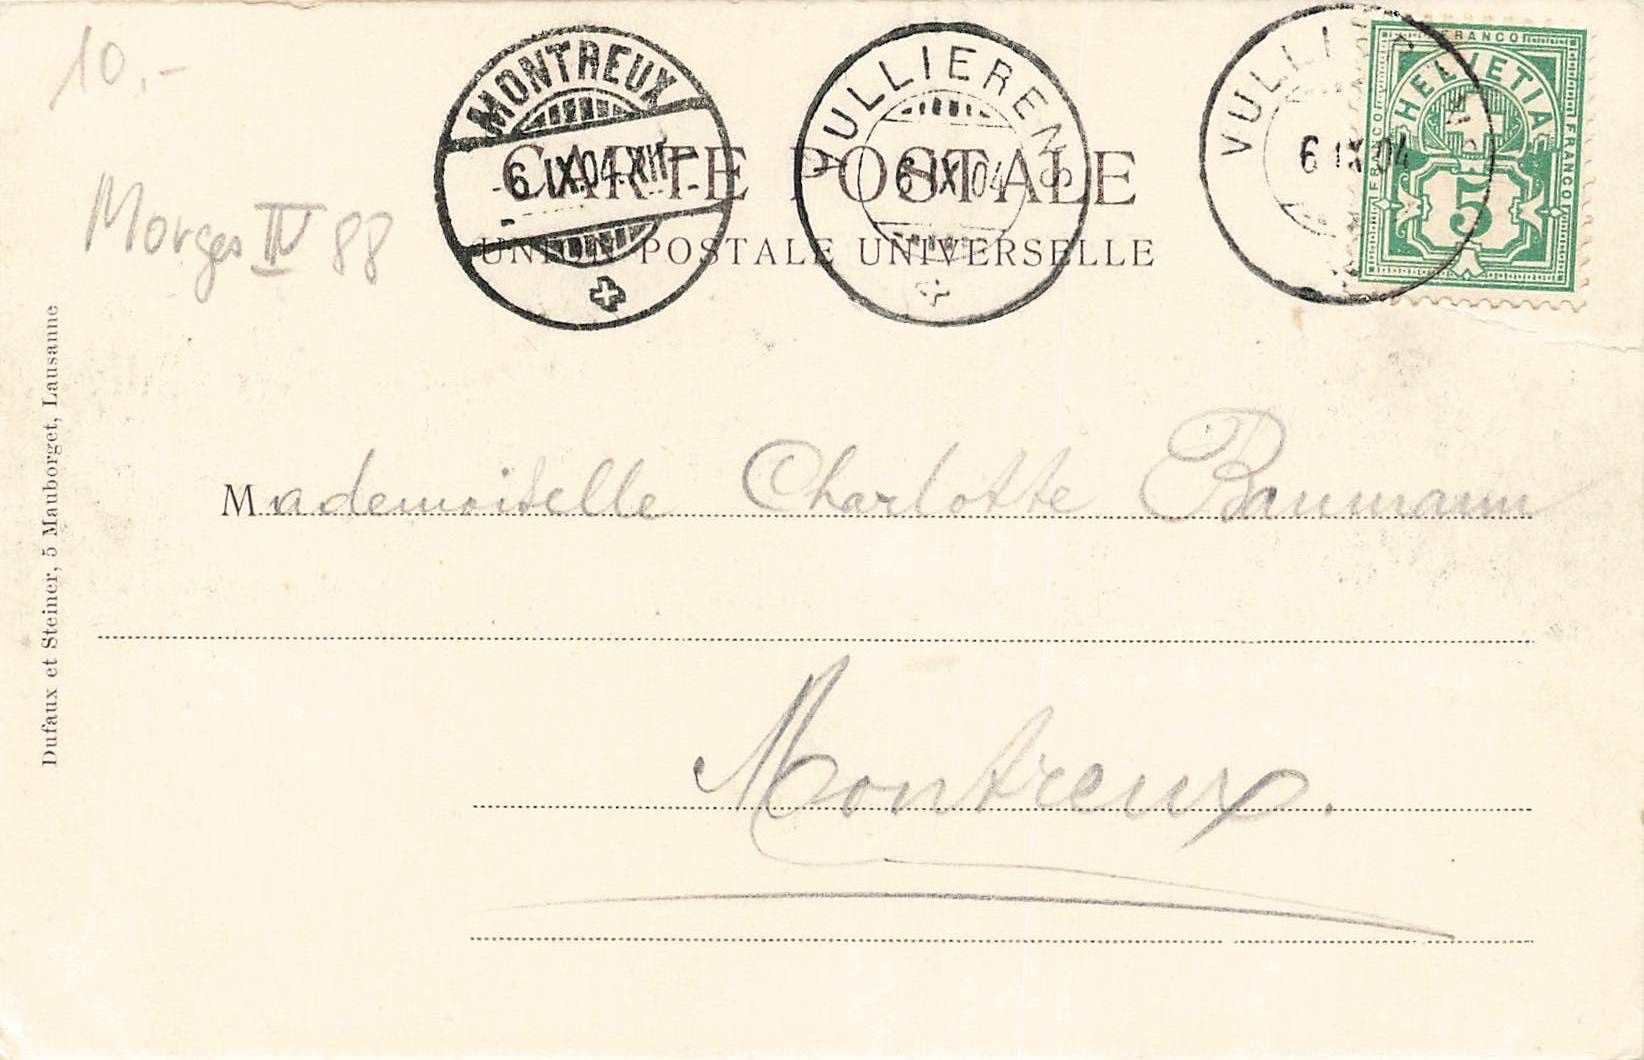 10.-
MONTREUX
6.IX.04.XII
VULLIERENS
6 IX 04
VULLIERENS
6 IX 04
FRANCO
FRANCO
FRANCO
HELVETIA
5
CARTE POSTALE
UNION POSTALE UNIVERSELLE
Morges IV 88
Dufaux et Steiner, 5 Mauborget, Lausanne
Mademoiselle Charlotte Baumann
Montreux.